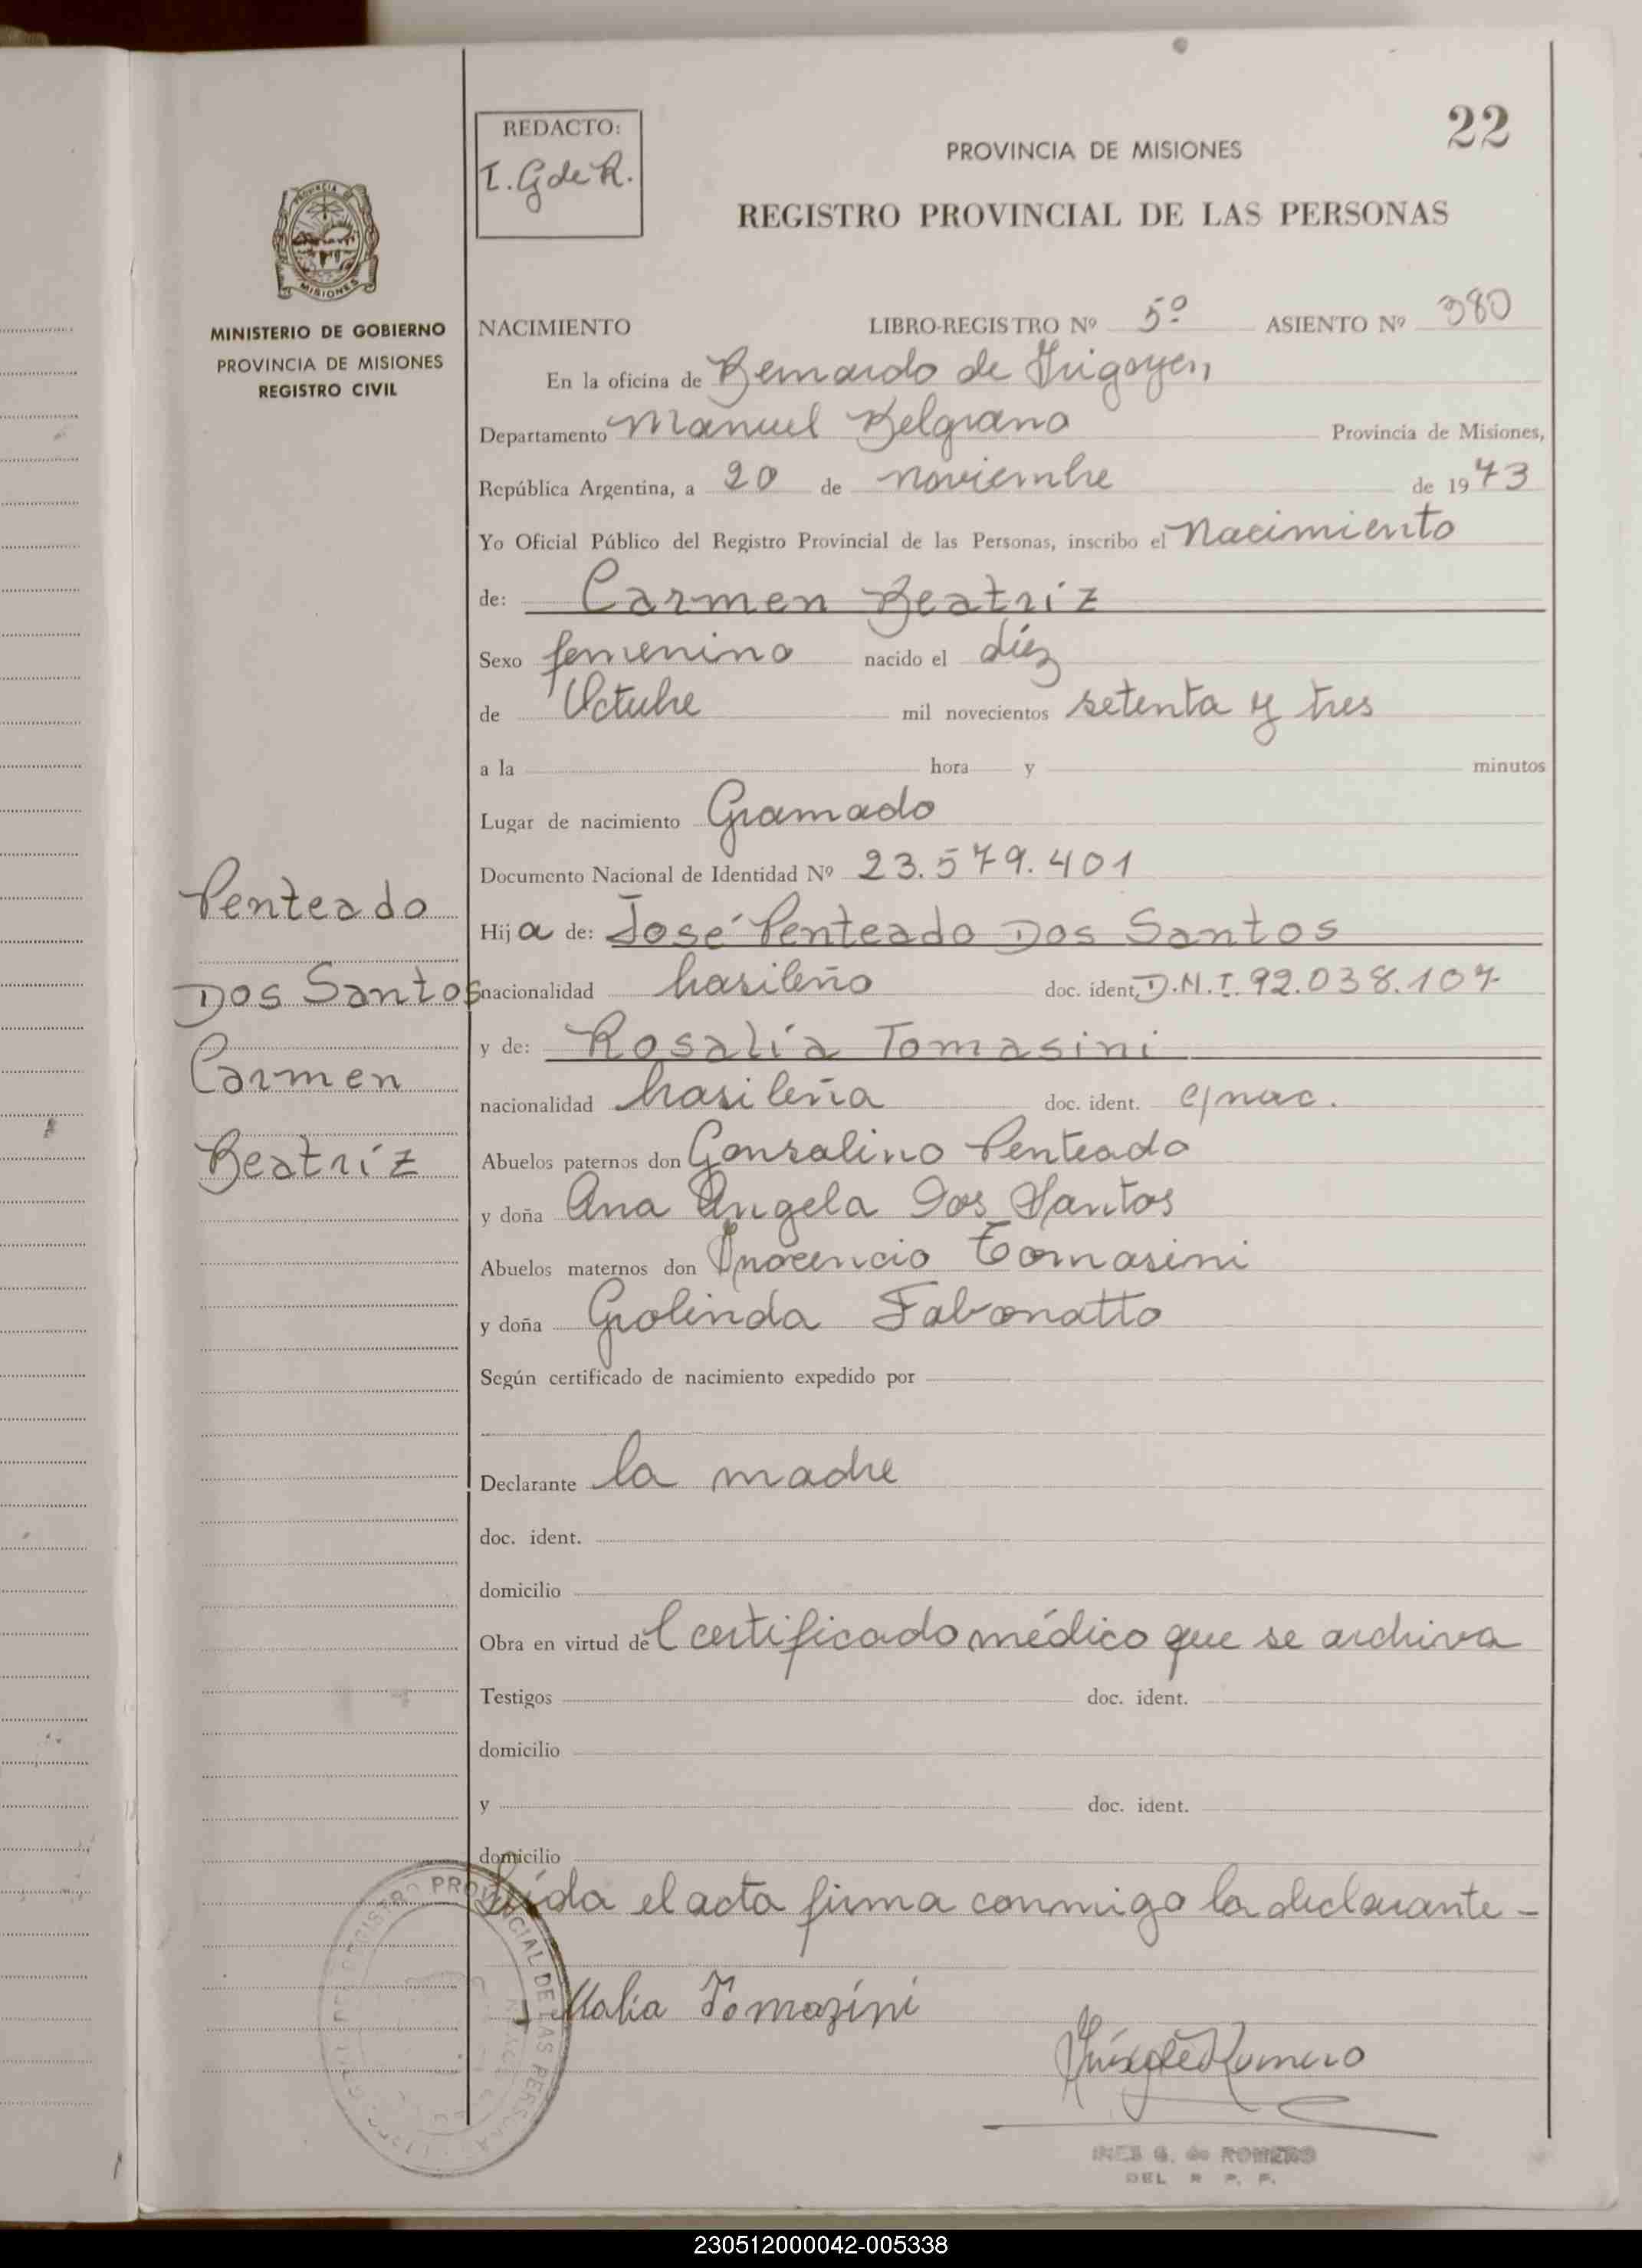 22
REDACTO:
I. G de R.
PROVINCIA DE MISIONES
REGISTRO PROVINCIAL DE LAS PERSONAS
MISIONES
MINISTERIO DE GOBIERNO
PROVINCIA DE MISIONES
REGISTRO CIVIL
NACIMIENTO LIBRO-REGISTRO Nº 5º ASIENTO Nº 380
En la oficina de Bernardo de Irigoyen,
Departamento Manuel Belgrano Provincia de Misiones,
República Argentina, a 20 de noviembre de 1973
Yo Oficial Público del Registro Provincial de las Personas, inscribo el Nacimiento
de: Carmen Beatríz
Sexo femenino nacido el diéz
de Octubre mil novecientos setenta y tres
a la hora y minutos
Lugar de nacimiento Gramado
Documento Nacional de Identidad Nº 23.579.401
Penteado
Dos Santos
Carmen
Beatríz
Hija de: José Penteado Dos Santos
nacionalidad brasileño doc. ident. D.N.I. 92.038.107
y de: Rosalía Tomasini
nacionalidad brasileña doc. ident. c/nac.
Abuelos paternos don Gonsalino Penteado
y doña Ana Angela Dos Santos
Abuelos maternos don Inocencio Tomasini
y doña Grolinda Fabonatto
Según certificado de nacimiento expedido por
Declarante la madre
doc. ident.
domicilio
Obra en virtud del certificado médico que se archiva
Testigos doc. ident.
domicilio
y doc. ident.
domicilio
Leída el acta firma conmigo la declarante -
Tomazini
Romero
INES G. de ROMERO
DEL R P. P.
230512000042-005338